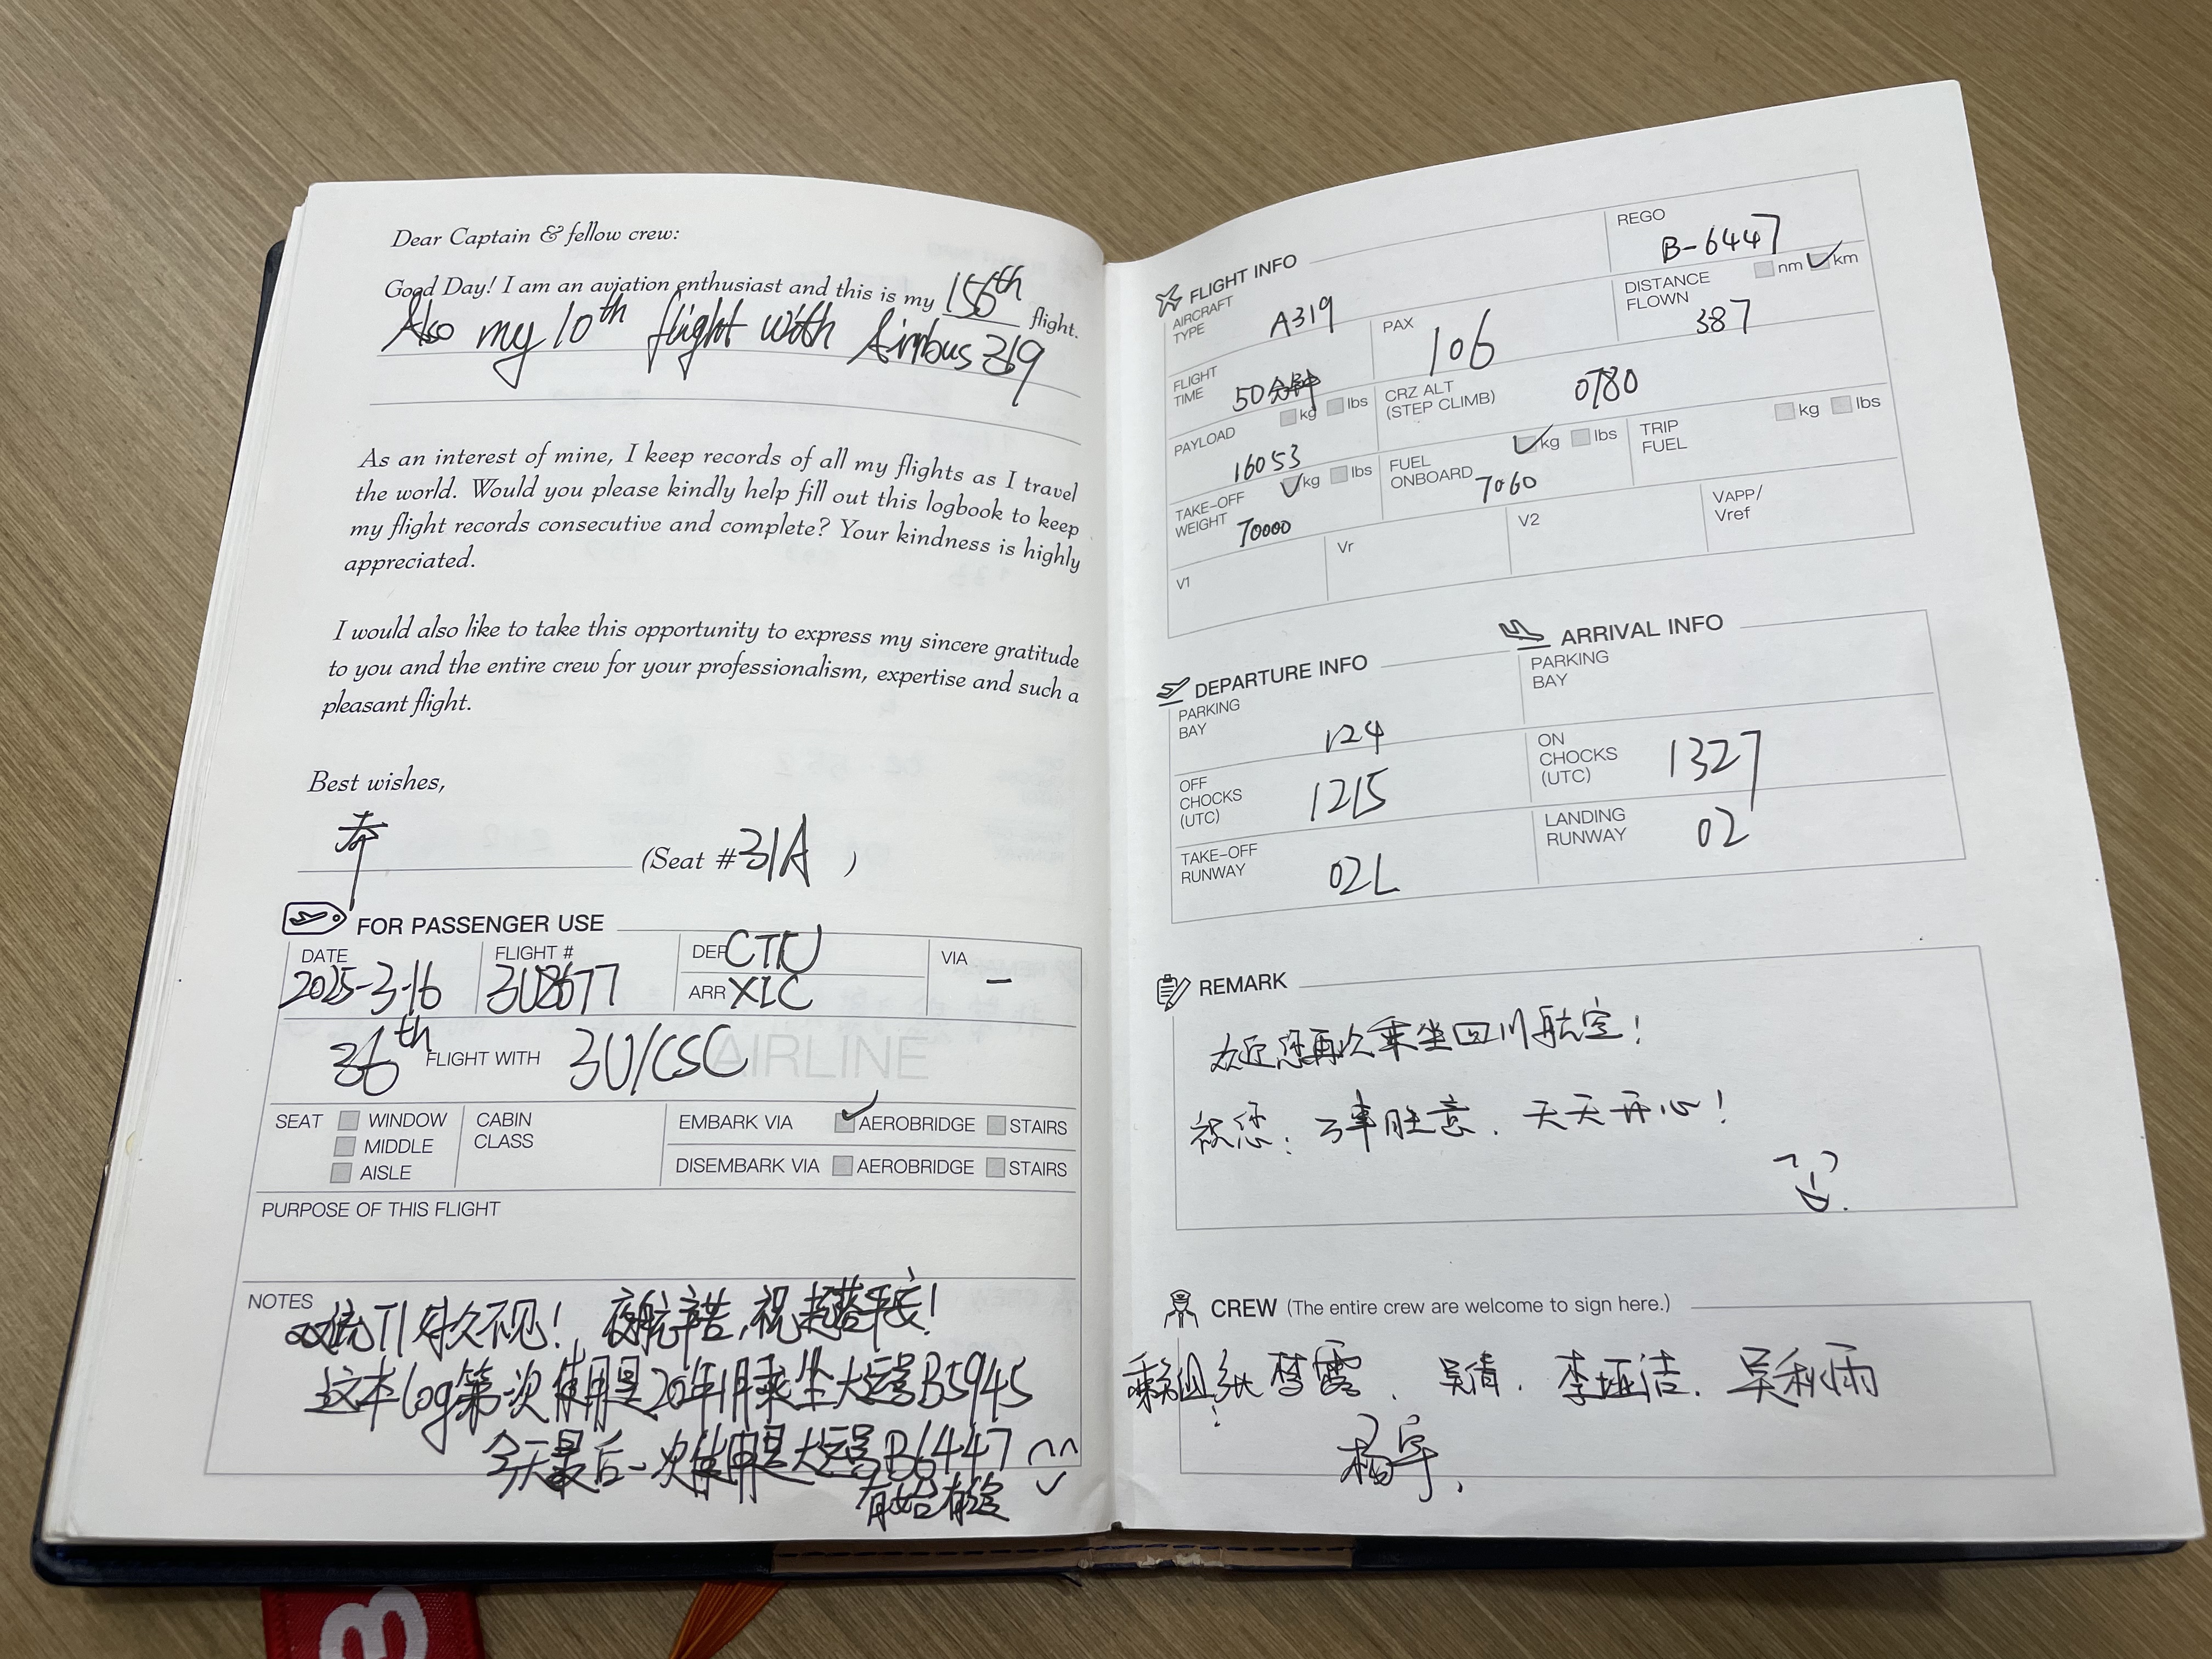 Dear Captain & fellow crew:
Good Day! I am an aviation enthusiast and this is my 156th flight.
Also my 10th flight with Airbus 319
As an interest of mine, I keep records of all my flights as I travel
the world. Would you please kindly help fill out this logbook to keep
my flight records consecutive and complete? Your kindness is highly
appreciated.
I would also like to take this opportunity to express my sincere gratitude
to you and the entire crew for your professionalism, expertise and such a
pleasant flight.
Best wishes,
(Seat #31A )
FOR PASSENGER USE
DATE 2025-3-16
FLIGHT # 3U8677
DEP CTU
ARR XIC
VIA –
36th FLIGHT WITH 3U/CSC
AIRLINE
SEAT WINDOW
MIDDLE
AISLE
CABIN CLASS
EMBARK VIA AEROBRIDGE STAIRS
DISEMBARK VIA AEROBRIDGE STAIRS
PURPOSE OF THIS FLIGHT
NOTES
好久不见! 夜航辛苦,祝起落平安!
这本log第一次使用是20年1月乘坐大运号B5945
今天最后一次使用是大运号B6447
有始有终
FLIGHT INFO
REGO B-6447
AIRCRAFT TYPE A319
PAX 106
DISTANCE FLOWN nm km
387
FLIGHT TIME 50分钟
CRZ ALT (STEP CLIMB) 0780
PAYLOAD kg lbs
16053
FUEL ONBOARD kg lbs
7060
TRIP FUEL kg lbs
TAKE-OFF WEIGHT kg lbs
70000
V1
Vr
V2
VAPP/ Vref
DEPARTURE INFO
PARKING BAY 124
OFF CHOCKS (UTC) 1215
TAKE-OFF RUNWAY 02L
ARRIVAL INFO
PARKING BAY
ON CHOCKS (UTC) 1327
LANDING RUNWAY 02
REMARK
欢迎您再次乘坐四川航空!
祝您: 万事胜意. 天天开心!
CREW (The entire crew are welcome to sign here.)
乘务组: 梦露. 吴倩. 李垭洁. 吴秋雨
杨宇.